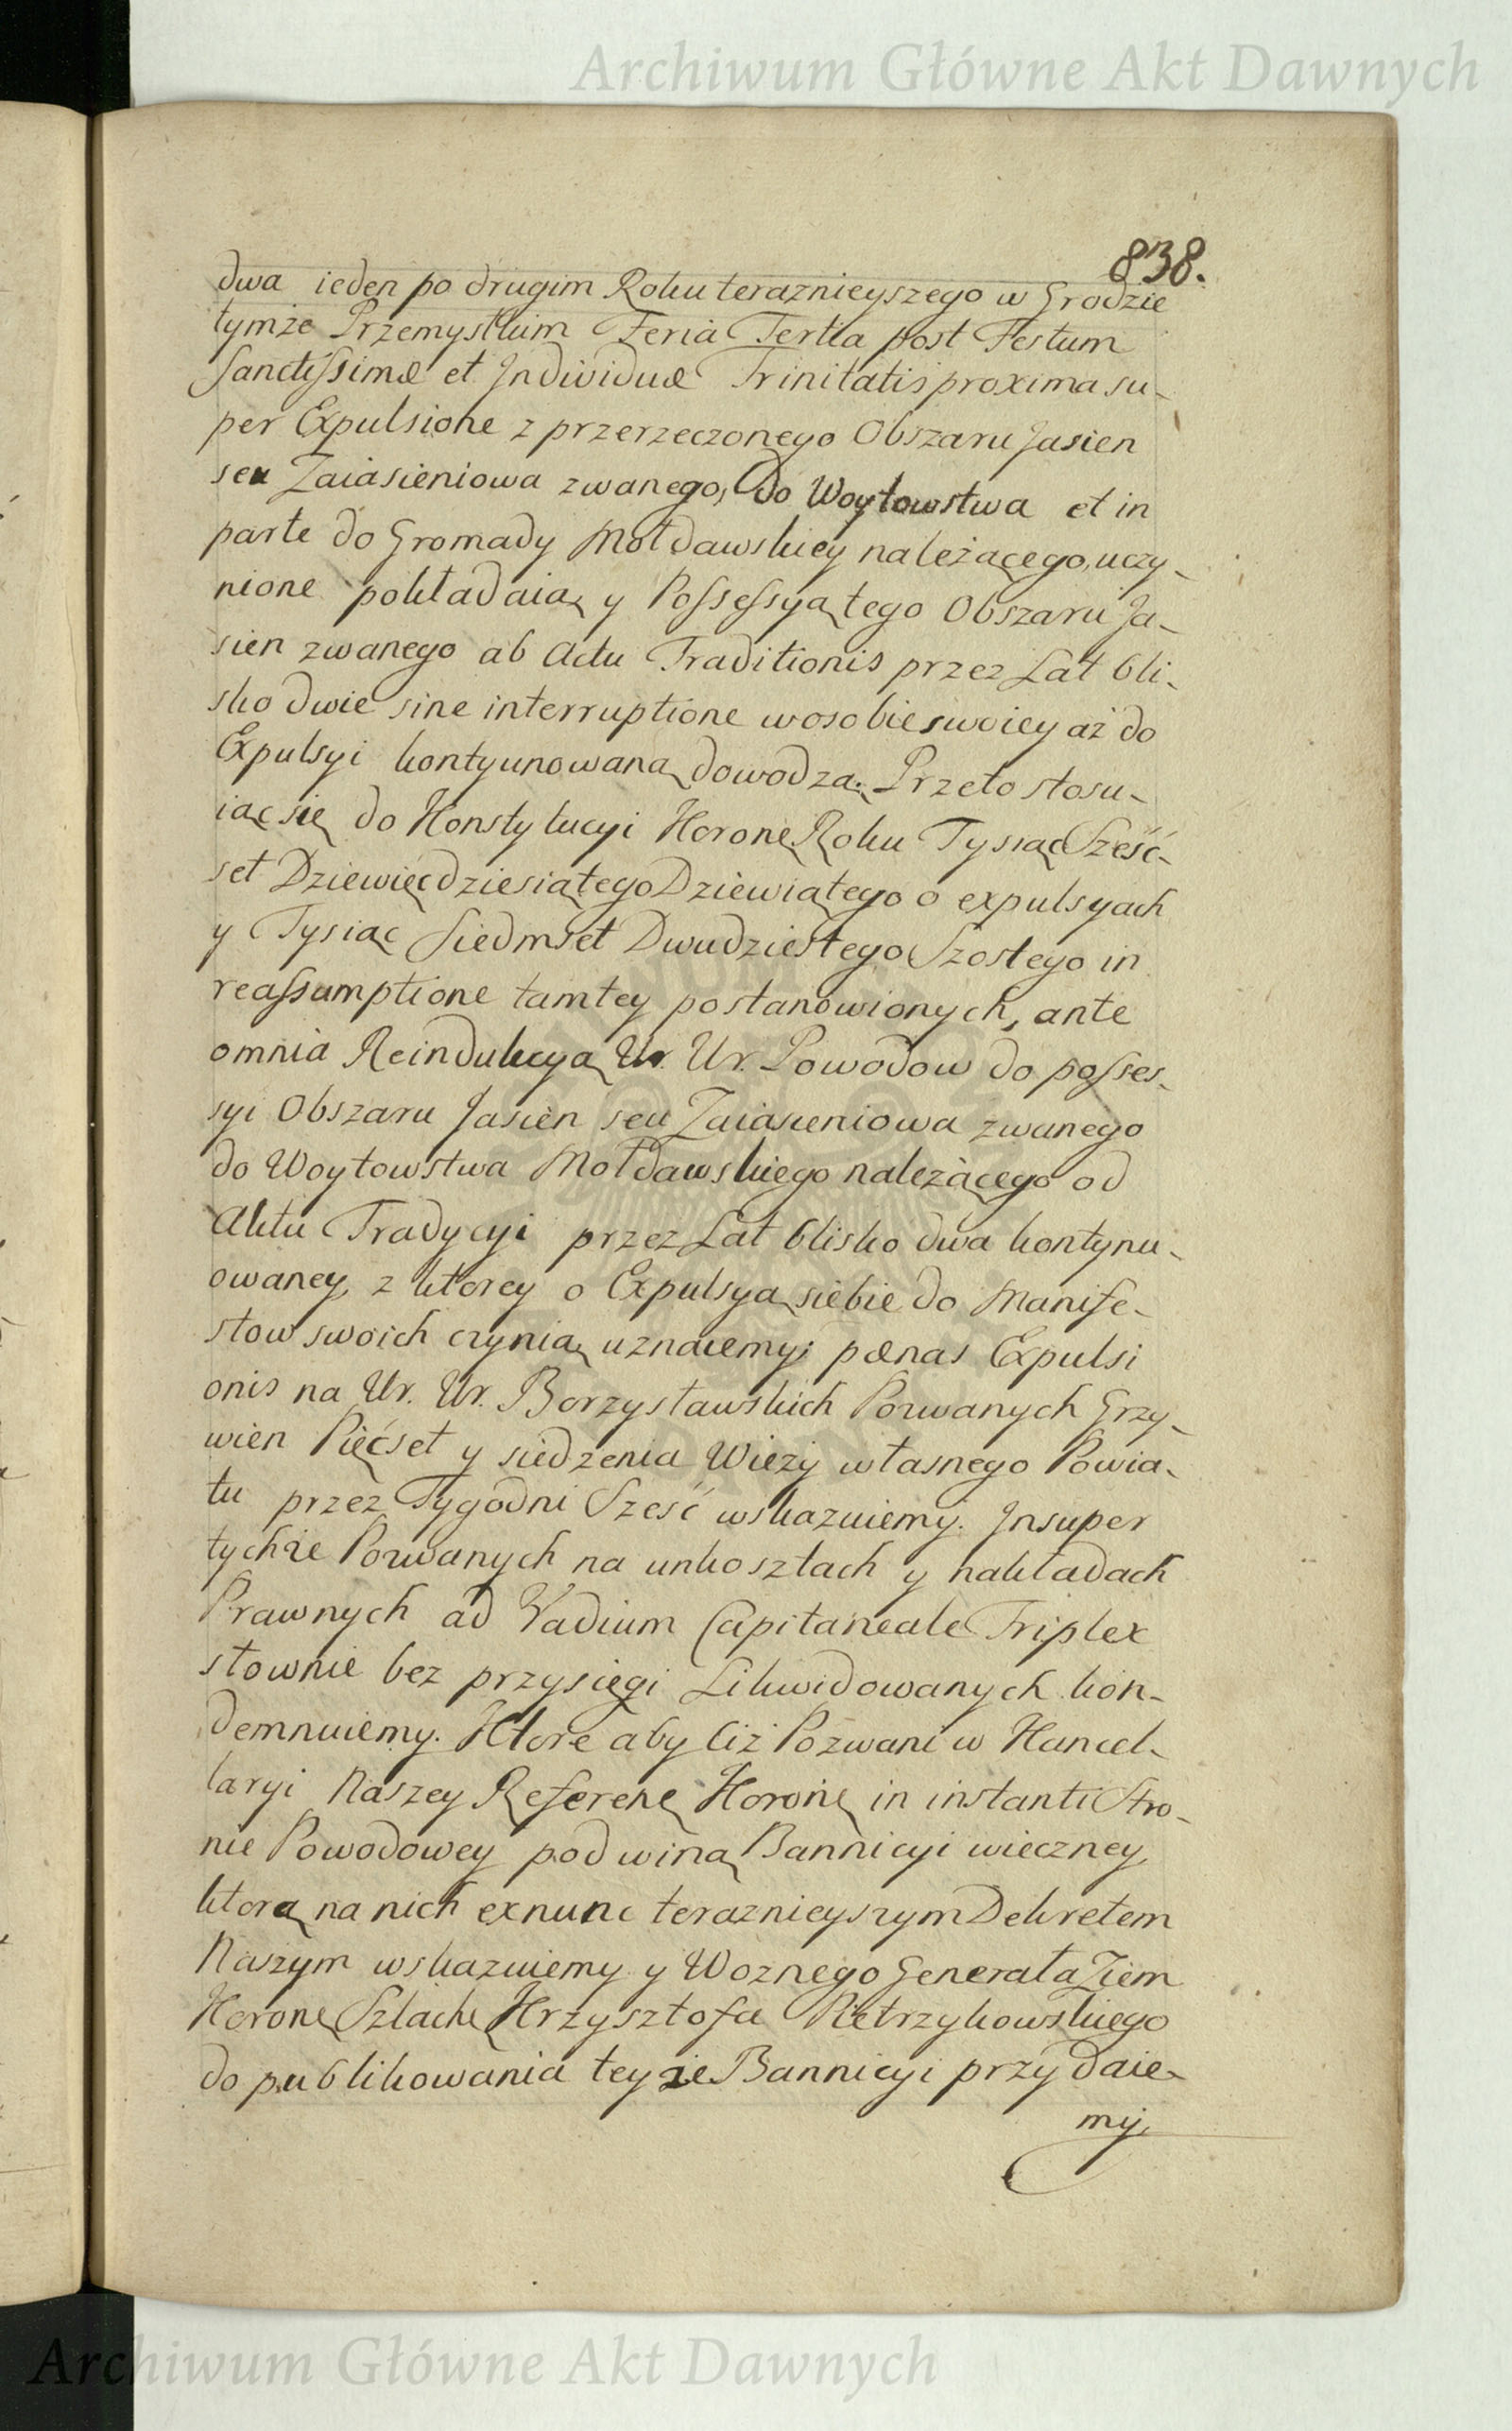 Archiwum Główne Akt Dawnych
838.
dwa ieden po drugim Roku teraznieyszego w Grodzie
tymże Przemyskim Feria Tertia post Festum
Sanctissimæ et Individuæ Trinitatis proxima su-
per Expulsione z przerzeczonego Obszaru Jasien
seu Zaiasieniowa zwanego, do Woytowstwa et in
parte do Gromady Mołdawskiey należącego, uczy-
nione pokładaią y Possessyą tego Obszaru Ja-
sien zwanego ab Actu Traditionis przez Lat bli-
sko dwie sine interruptione w osobie swoiey aż do
Expulsyi kontynuowaną dowodzą. Przeto stosu-
iąc się do Konstytucyi Koronę Roku Tysiąc Sześć-
set Dziewięcdziesiątego Dziewiątego o expulsyach
y Tysiąc Siedmset Dwudziestego Szostego in
reassumptione tamtey postanowionych, ante
omnia Reindukcyą Ur. Ur. Powodow do posses-
syi Obszaru Jasien seu Zaiasieniowa zwanego
do Woytowstwa Mołdawskiego należącego od
Aktu Tradycyi przez Lat blisko dwa kontynu-
owaney, z ktorey o Expulsyą siebie do Manife-
stow swoich czynią, uznaiemy; pænas Expulsi
onis na Ur. Ur. Borzysławskich Pozwanych Grzy-
wien Pięćset y siedzenia Wieży własnego Powia-
tu przez Tygodni Sześć wskazuiemy. Insuper
tychże Pozwanych na unkosztach y nakładach
Prawnych ad Vadium Capitaneale Triplex
słownie bez przysięgi Likwidowanych kon-
demnuiemy. Ktore aby ciż Pozwani w Kancel-
laryi Naszey Referenę Koronę in instanti Stro-
nie Powodowey pod winą Bannicyi wieczney,
ktorą na nich exnunc teraznieyszym Dekretem
Naszym wskazuiemy y Woznego Generała Ziem
Koronę Szlachę Krzysztofa Pietrzykowskiego
do publikowania teyże Bannicyi przydaie-
my,
Archiwum Główne Akt Dawnych